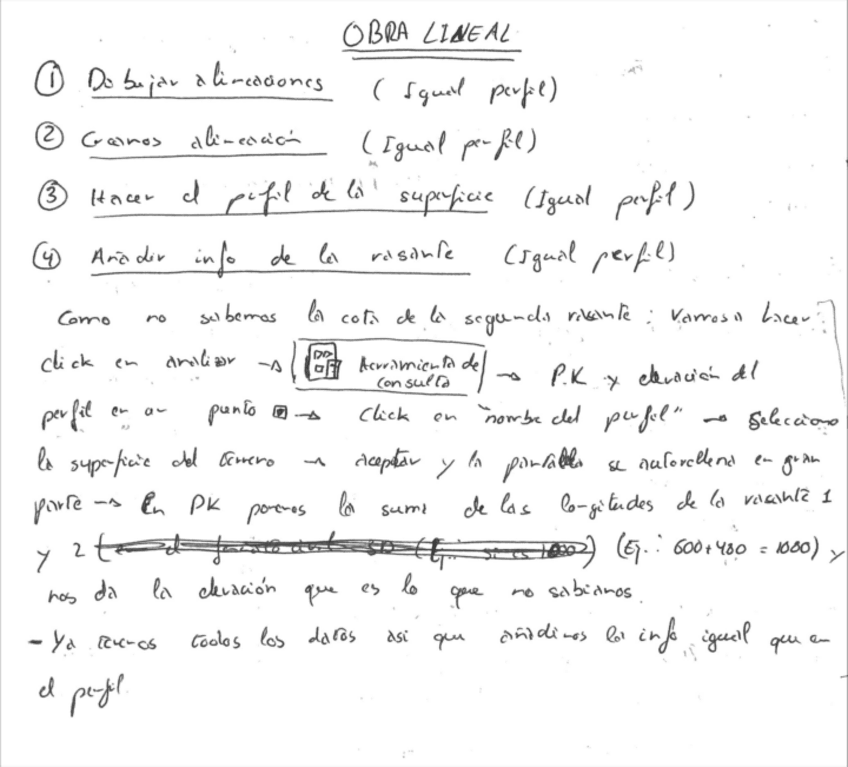 OBRA LINEAL
① Dibujar alineaciones (Igual perfil)
② Creamos alineación (Igual perfil)
③ Hacer el perfil de la superficie (Igual perfil)
④ Añadir info de la rasante (Igual perfil)
Como no sabemos la cota de la segunda rasante: Vamos a hacer
click en analizar → Herramienta de consulta → P.K y elevación del
perfil en un punto → Click en "nombre del perfil" → Selecciono
la superficie del terreno → aceptar y la pantalla se autorellena en gran
parte → En PK ponemos la suma de las longitudes de la rasante 1
y 2 (Ej.: 600+480 = 1080) y
nos da la elevación que es lo que no sabíamos.
- Ya tenemos todos los datos asi que añadimos la info igual que en
el perfil